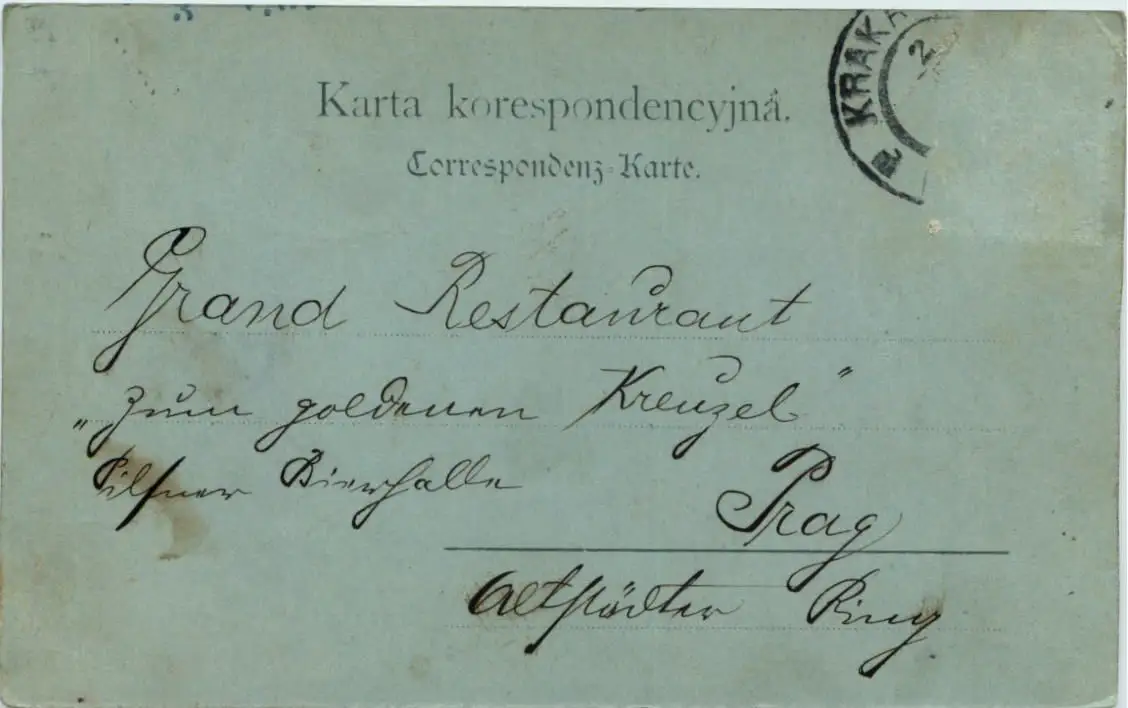 KRAK
2
Karta korespondencyjna.
Correspondenz-Karte.
Grand Restaurant
„Zum goldenen Kreuzel"
Pilsner Bierhalle
Prag
Altstädter Ring